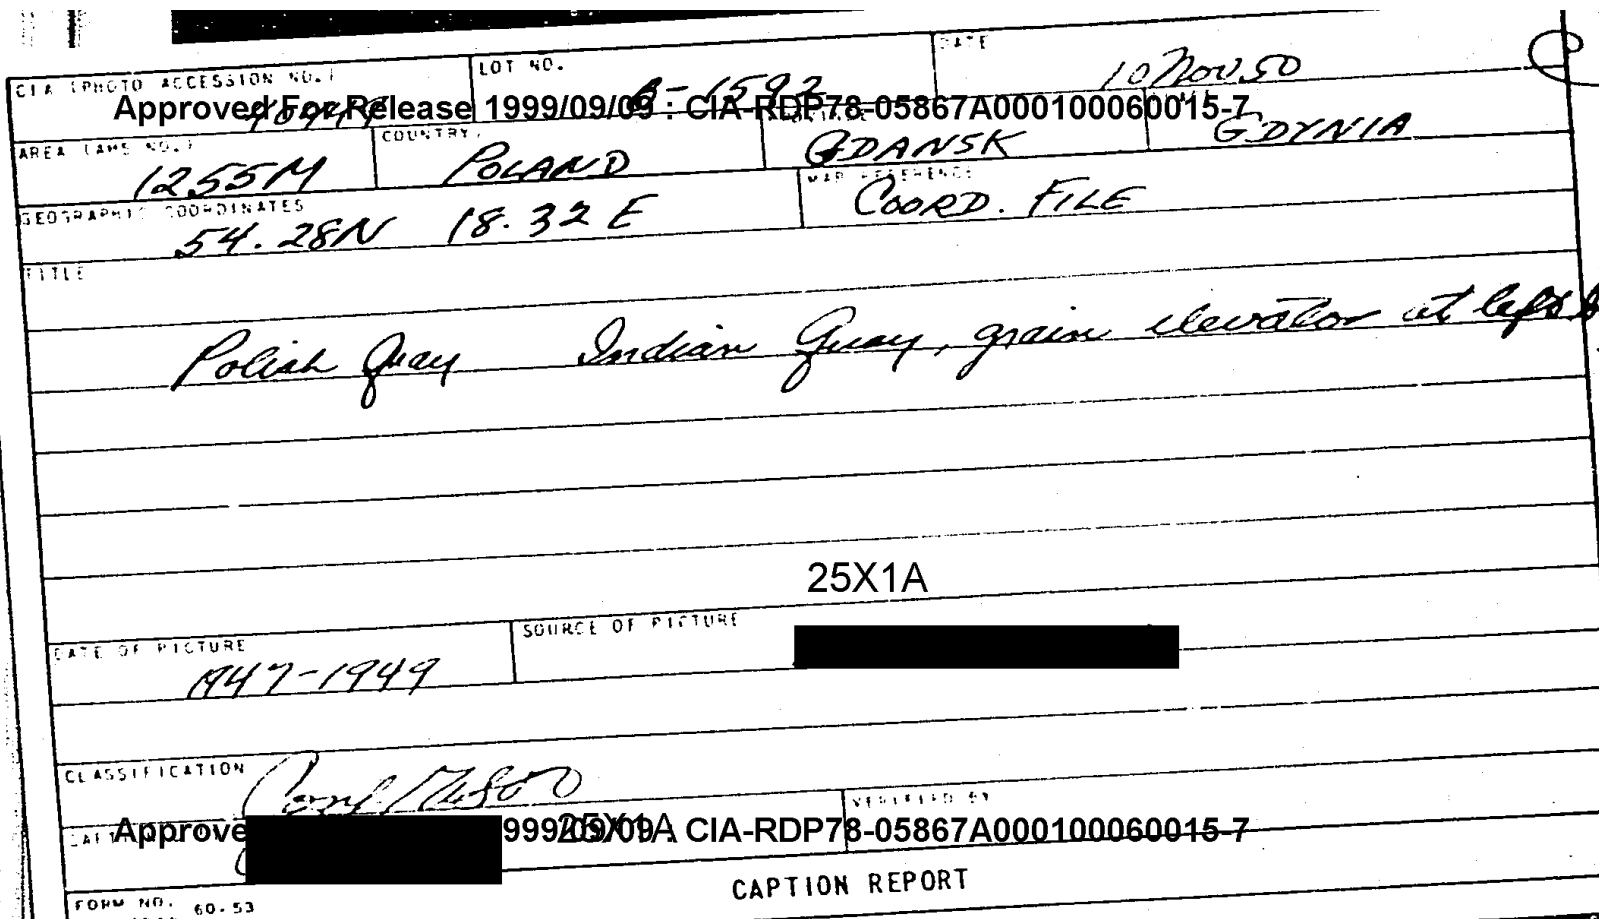 CIA (PHOTO ACCESSION NO.) LOT NO. B-1592 DATE 10 NOV 50
Approved For Release 1999/09/09 : CIA-RDP78-05867A000100060015-7
AREA (AMS NO.) 1255M COUNTRY POLAND GDANSK GDYNIA
GEOGRAPHIC COORDINATES 54.28N 18.32 E MAP REFERENCE COORD. FILE
TITLE
Polish Quay Indian Quay, grain elevator at left
25X1A
DATE OF PICTURE 1947-1949 SOURCE OF PICTURE
CLASSIFICATION
VERIFIED BY
25X1A
Approve 999/09/09 : CIA-RDP78-05867A000100060015-7
CAPTION REPORT
FORM NO. 60-53